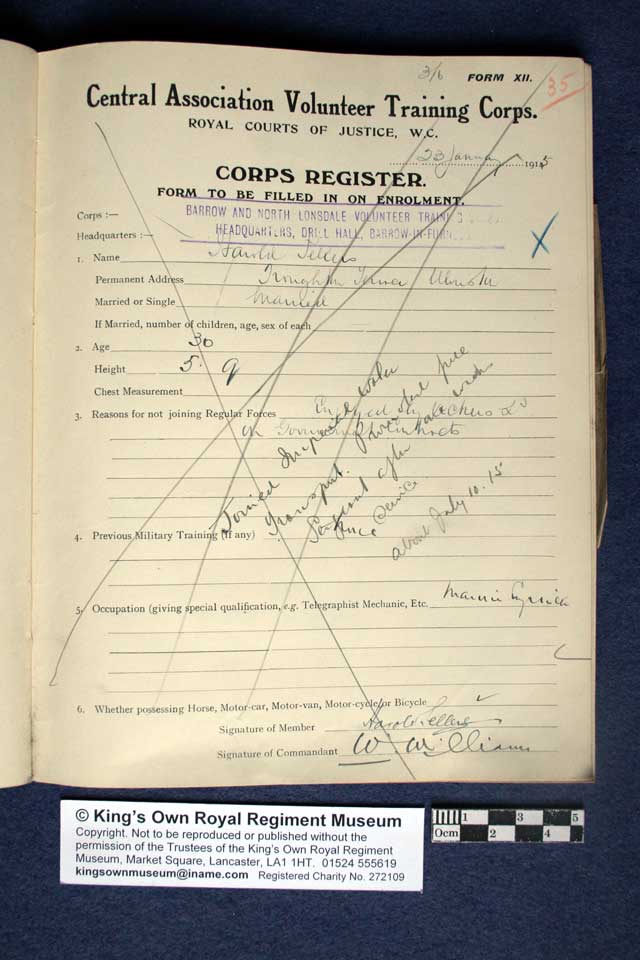 3/6 FORM XII. 35
Central Association Volunteer Training Corps.
ROYAL COURTS OF JUSTICE, W.C.
23 January 1915
CORPS REGISTER.
FORM TO BE FILLED IN ON ENROLMENT.
Corps :— BARROW AND NORTH LONSDALE VOLUNTEER
Headquarters :— HEADQUARTERS, DRILL HALL, BARROW-IN-FURN
1. Name Harold Sellers
Permanent Address
Married or Single Married
If Married, number of children, age, sex of each
2. Age 30
Height 5. 9
Chest Measurement
3. Reasons for not joining Regular Forces
on
Joined
Transport.
Sergeant after
Service
about July 10. 15
4. Previous Military Training (if any)
5. Occupation (giving special qualification, e.g. Telegraphist Mechanic, Etc.
6. Whether possessing Horse, Motor-car, Motor-van, Motor-cycle or Bicycle
Signature of Member Harold Sellers
Signature of Commandant W Williams
© King's Own Royal Regiment Museum
Copyright. Not to be reproduced or published without the
permission of the Trustees of the King's Own Royal Regiment
Museum, Market Square, Lancaster, LA1 1HT. 01524 555619
kingsownmuseum@iname.com Registered Charity No. 272109
1 3 5
0cm 2 4